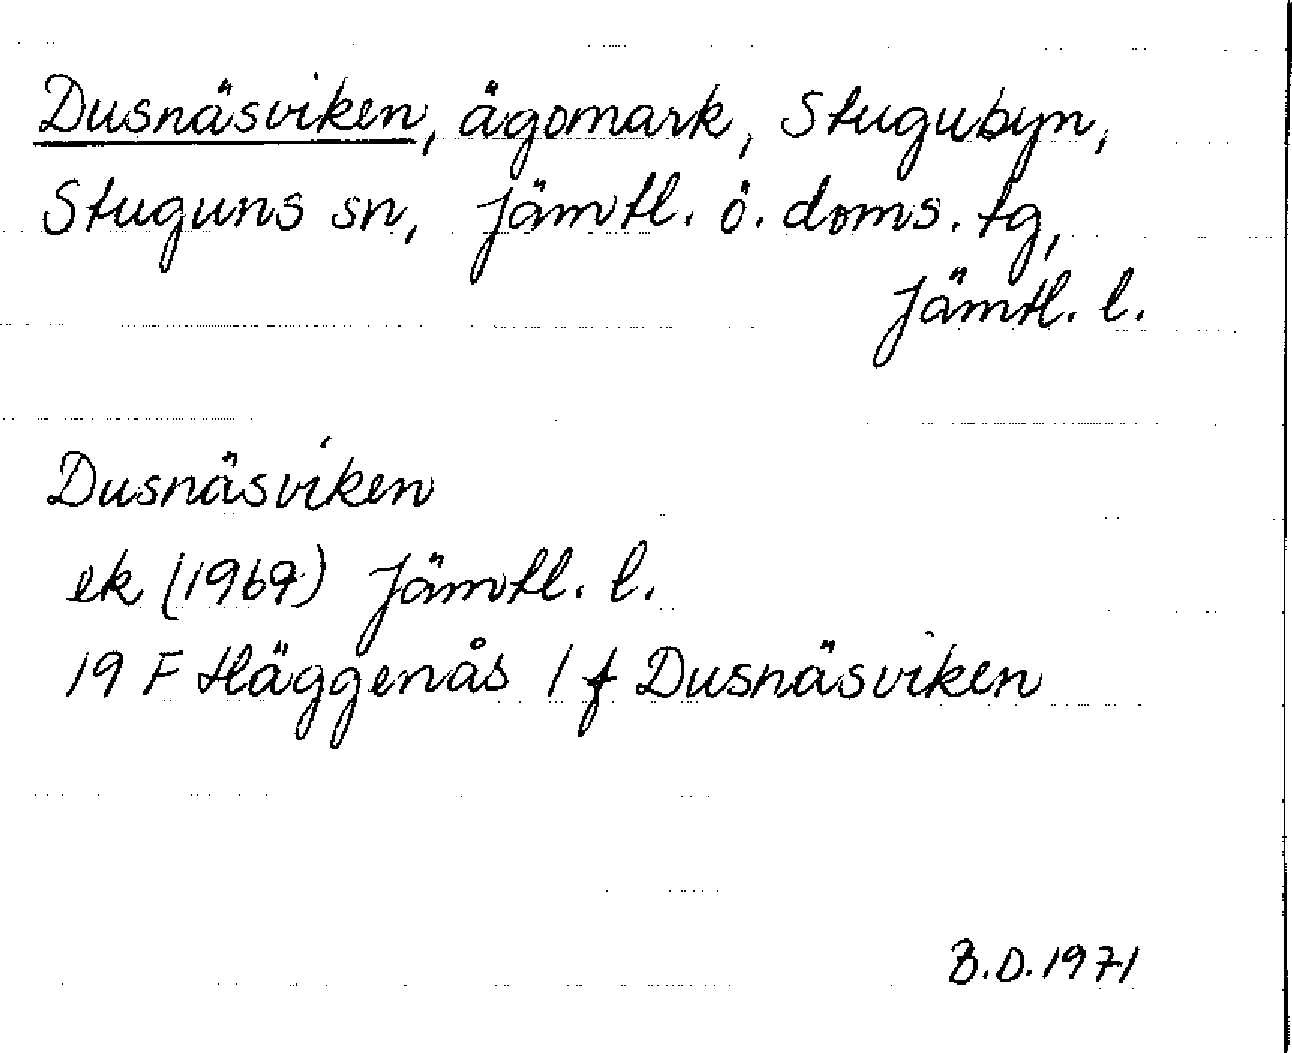 Dusnäsviken, ägomark, Stugubyn,
Stuguns sn, Jämtl. ö. doms. tg,
Jämtl. l.
Dusnäsviken
ek (1969) Jämtl. l.
19 F Häggenås 1 f Dusnäsviken
B.D. 1971